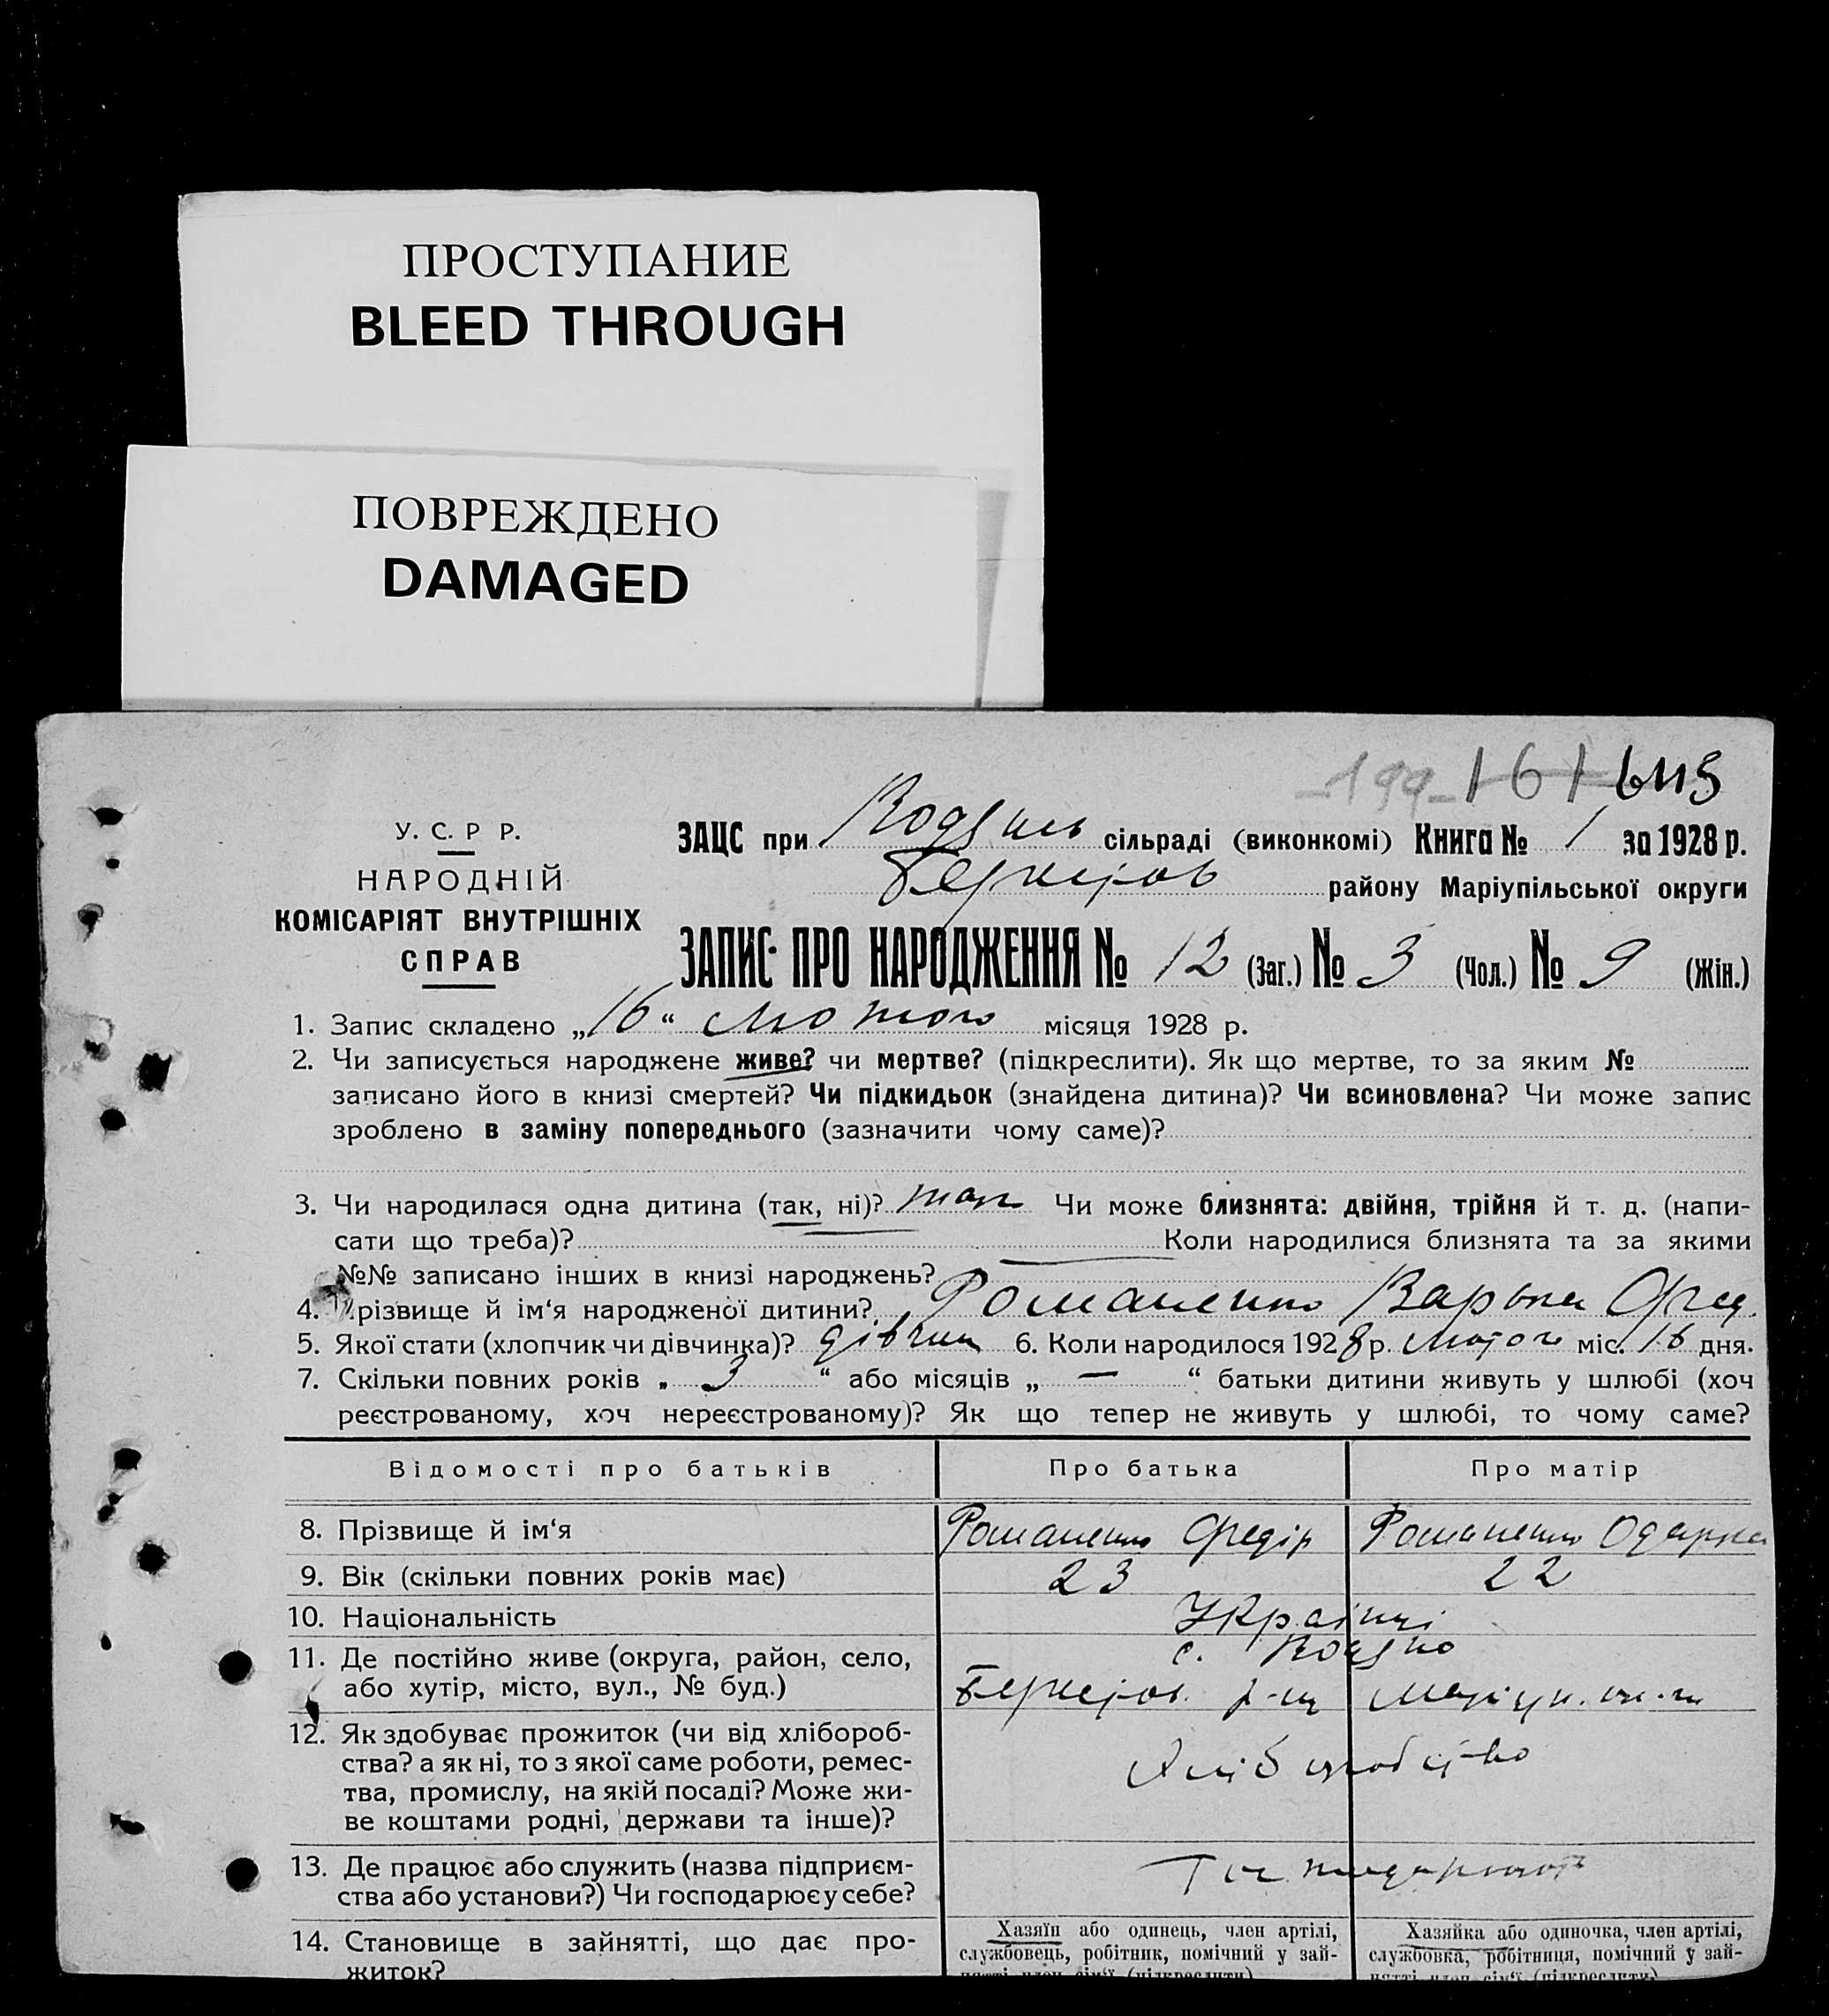 ПРОСТУПАНИЕ
BLEED THROUGH
ПОВРЕЖДЕНО
DAMAGED
199 161 645
У. С. Р Р.
НАРОДНІЙ
КОМІСАРІЯТ ВНУТРІШНІХ
СПРАВ
ЗАЦС при сільраді (виконкомі) Книга № 1 за 1928 р.
району Маріупільської округи
ЗАПИС ПРО НАРОДЖЕННЯ № 12 (Заг.) № 3 (Чол.) № 9 (Жін.)
1. Запис складено „16“ Лютого місяця 1928 р.
2. Чи записується народжене живе? чи мертве? (підкреслити). Як що мертве, то за яким №
записано його в книзі смертей? Чи підкидьок (знайдена дитина)? Чи всиновлена? Чи може запис
зроблено в заміну попереднього (зазначити чому саме)?
3. Чи народилася одна дитина (так, ні)? так Чи може близнята: двійня, трійня й т. д. (напи-
сати що треба)? Коли народилися близнята та за якими
№№ записано інших в книзі народжень?
4. Прізвище й ім‘я народженої дитини? Романенко Варька Фед.
5. Якої стати (хлопчик чи дівчинка)? дівчин 6. Коли народилося 1928 р. Лютого міс. 16 дня.
7. Скільки повних років „ 3 “ або місяців „ — “ батьки дитини живуть у шлюбі (хоч
реєстрованому, хоч нереєстрованому)? Як що тепер не живуть у шлюбі, то чому саме?
Відомості про батьків Про батька Про матір
8. Прізвище й ім‘я Романенко Федір Романенко Одарка
9. Вік (скільки повних років має) 23 22
10. Національність Українці
11. Де постійно живе (округа, район, село, с.
або хутір, місто, вул., № буд.) р-н
12. Як здобуває прожиток (чи від хлібороб-
ства? а як ні, то з якої саме роботи, ремес-
тва, промислу, на якій посаді? Може жи-
ве коштами родні, держави та інше)?
Хліборобство
13. Де працює або служить (назва підприєм-
ства або установи?) Чи господарює у себе?
14. Становище в зайнятті, що дає про-
житок?
Хазяїн або одинець, член артілі,
службовець, робітник, помічний у зай-
нятті член сім‘ї (підкреслити)
Хазяйка або одиночка, член артілі,
службовка, робітниця, помічний у зай-
нятті член сім‘ї (підкреслити)